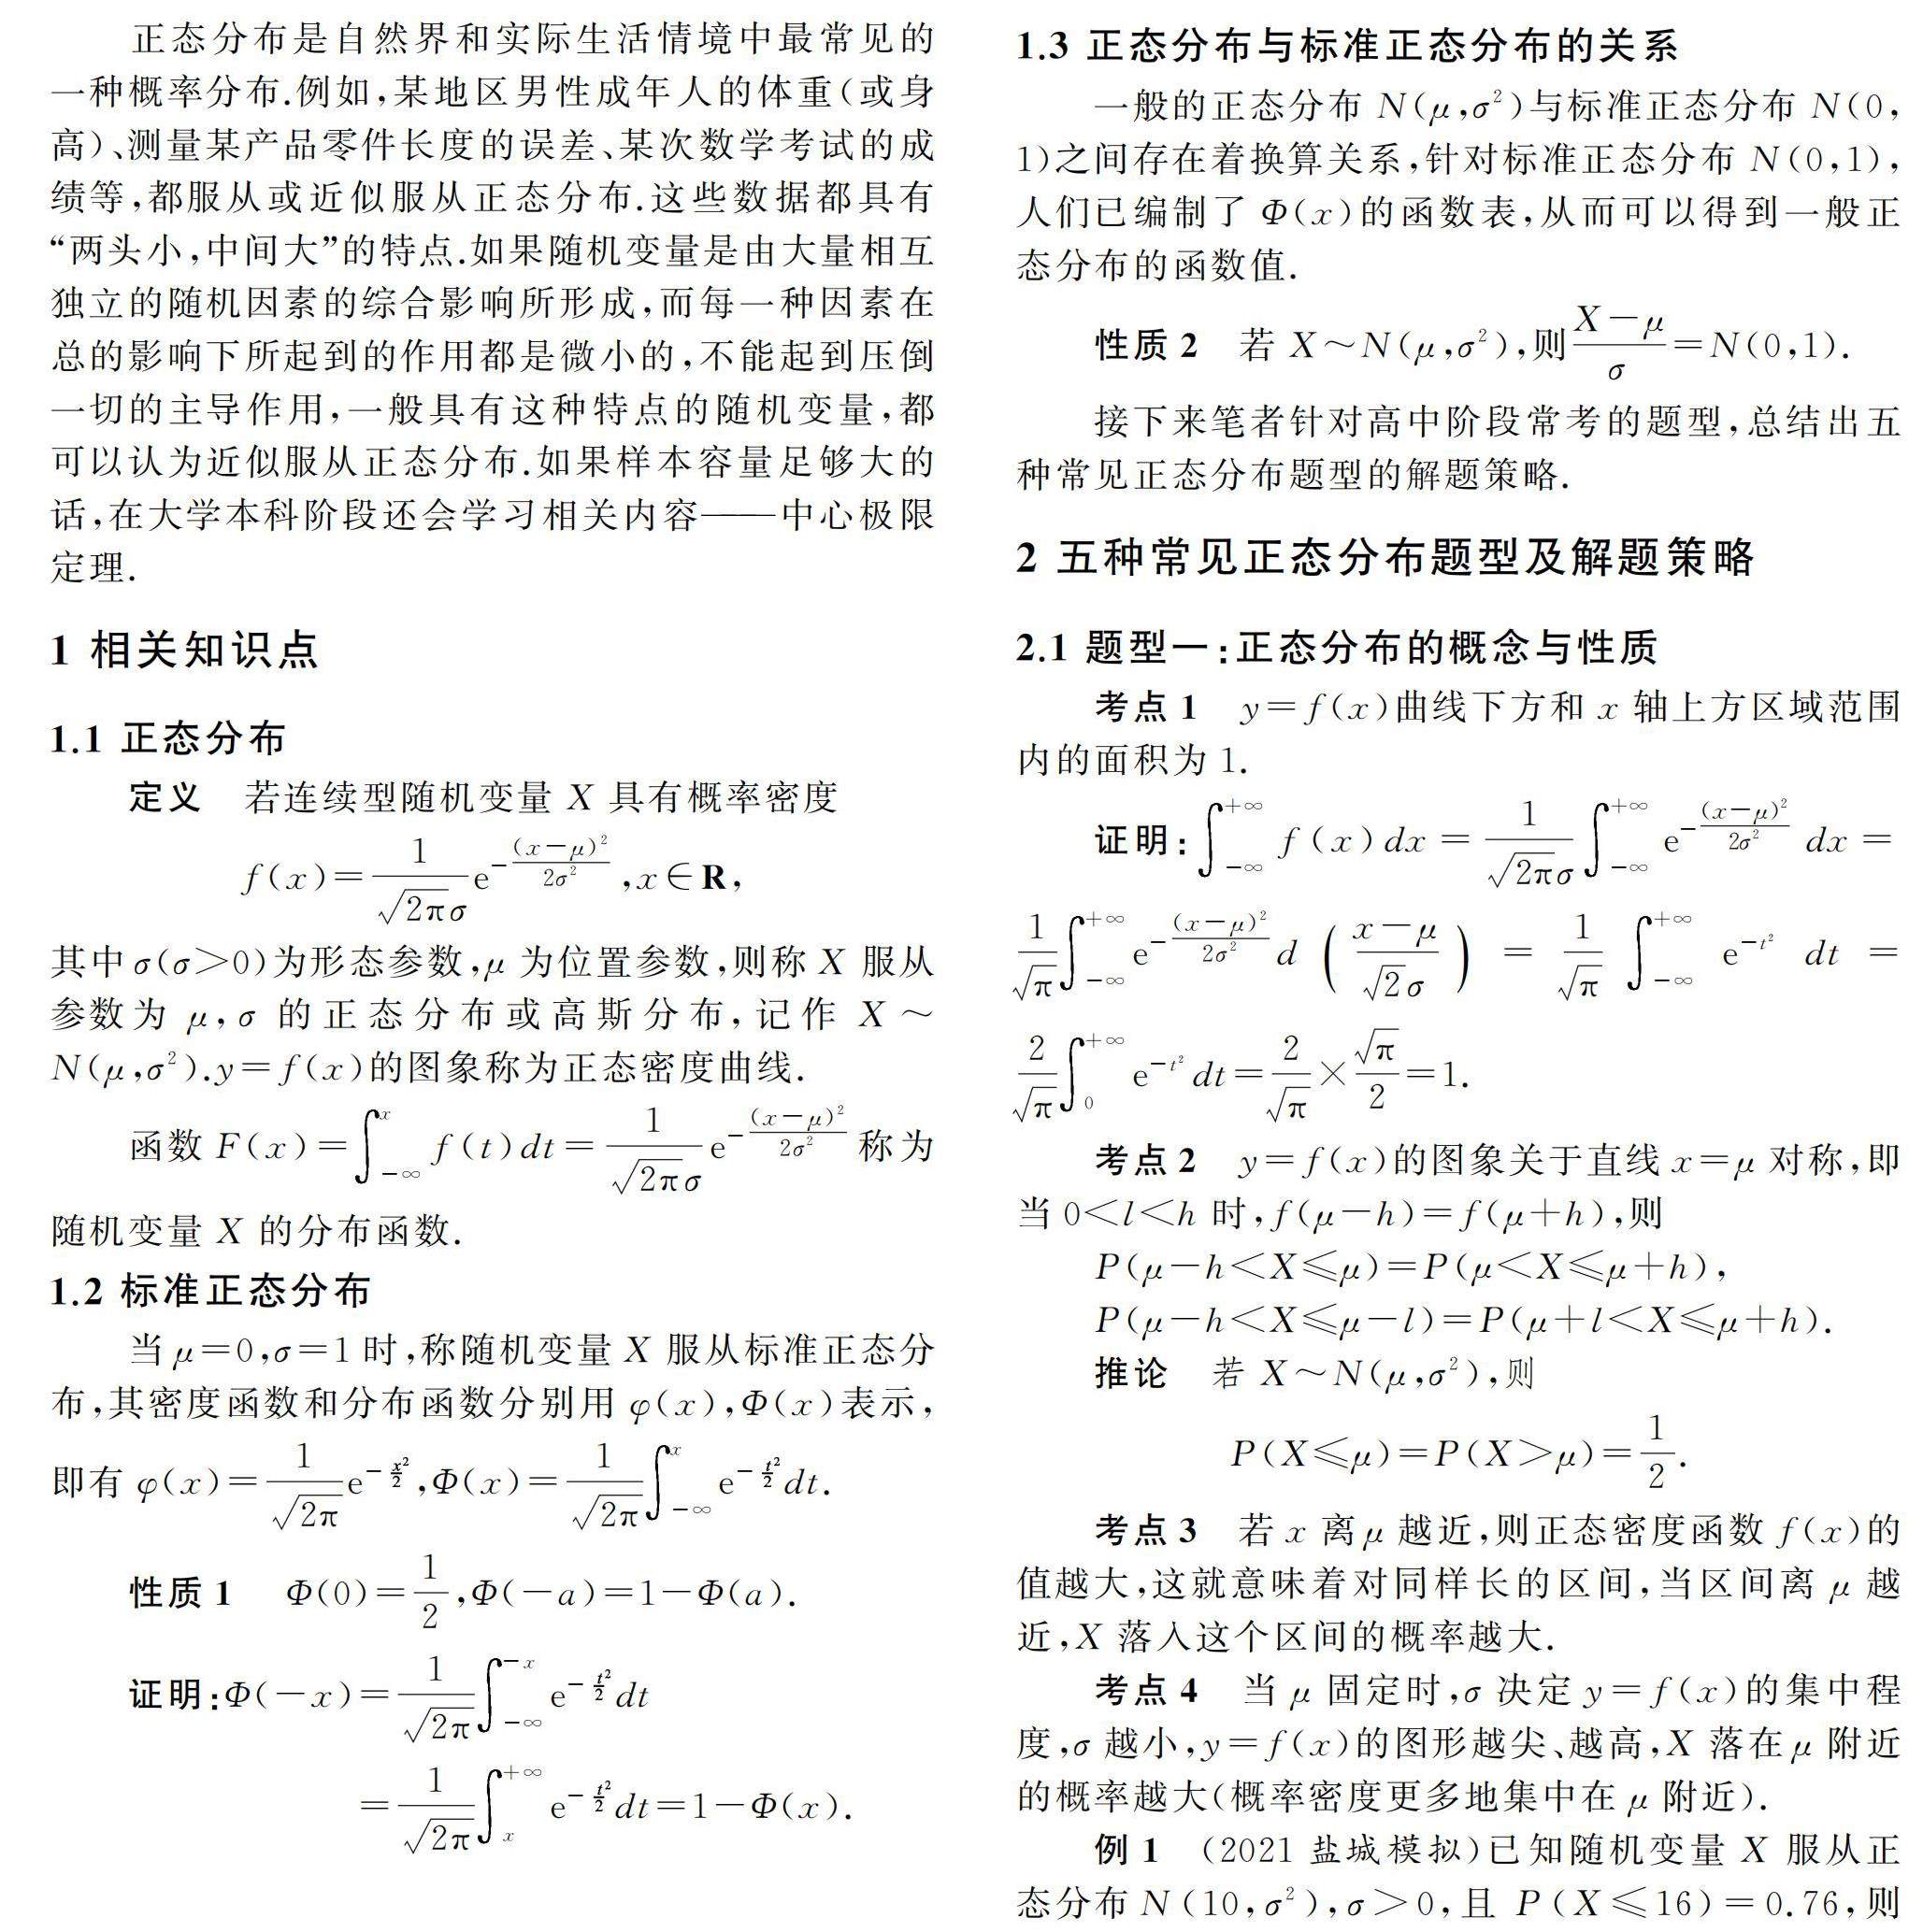 正态分布是自然界和实际生活情境中最常见的
一种概率分布.例如,某地区男性成年人的体重(或身
高)、测量某产品零件长度的误差、某次数学考试的成
绩等,都服从或近似服从正态分布.这些数据都具有
“两头小,中间大”的特点.如果随机变量是由大量相互
独立的随机因素的综合影响所形成,而每一种因素在
总的影响下所起到的作用都是微小的,不能起到压倒
一切的主导作用,一般具有这种特点的随机变量,都
可以认为近似服从正态分布.如果样本容量足够大的
话,在大学本科阶段还会学习相关内容——中心极限
定理.
1 相关知识点
1.1 正态分布
定义 若连续型随机变量 X 具有概率密度
f(x)=\frac{1}{\sqrt{2π}σ}e^{-\frac{(x-μ)^2}{2σ^2}},x∈R,
其中σ(σ>0)为形态参数,μ 为位置参数,则称 X 服从
参数为 μ,σ 的正态分布或高斯分布,记作 X~
N(μ,σ²).y=f(x)的图象称为正态密度曲线.
函数 F(x)=\int_{-∞}^{x} f(t)dt=\frac{1}{\sqrt{2π}σ}e^{-\frac{(x-μ)^2}{2σ^2}}称为
随机变量 X 的分布函数.
1.2 标准正态分布
当μ=0,σ=1时,称随机变量 X 服从标准正态分
布,其密度函数和分布函数分别用 φ(x),Φ(x)表示,
即有 φ(x)=\frac{1}{\sqrt{2π}}e^{-\frac{x^2}{2}},Φ(x)=\frac{1}{\sqrt{2π}}\int_{-∞}^{x}e^{-\frac{t^2}{2}}dt.
性质1 Φ(0)=\frac{1}{2},Φ(-a)=1-Φ(a).
证明:Φ(-x)=\frac{1}{\sqrt{2π}}\int_{-∞}^{-x}e^{-\frac{t^2}{2}}dt
=\frac{1}{\sqrt{2π}}\int_{x}^{+∞}e^{-\frac{t^2}{2}}dt=1-Φ(x).
1.3 正态分布与标准正态分布的关系
一般的正态分布 N(μ,σ²)与标准正态分布 N(0,
1)之间存在着换算关系,针对标准正态分布 N(0,1),
人们已编制了 Φ(x)的函数表,从而可以得到一般正
态分布的函数值.
性质2 若 X~N(μ,σ²),则\frac{X-μ}{σ}=N(0,1).
接下来笔者针对高中阶段常考的题型,总结出五
种常见正态分布题型的解题策略.
2 五种常见正态分布题型及解题策略
2.1 题型一:正态分布的概念与性质
考点1 y=f(x)曲线下方和 x 轴上方区域范围
内的面积为1.
证明:\int_{-∞}^{+∞} f(x)dx=\frac{1}{\sqrt{2π}σ}\int_{-∞}^{+∞}e^{-\frac{(x-μ)^2}{2σ^2}}dx=
\frac{1}{\sqrt{π}}\int_{-∞}^{+∞}e^{-\frac{(x-μ)^2}{2σ^2}}d(\frac{x-μ}{\sqrt{2}σ})=\frac{1}{\sqrt{π}}\int_{-∞}^{+∞}e^{-t^2}dt=
\frac{2}{\sqrt{π}}\int_{0}^{+∞}e^{-t^2}dt=\frac{2}{\sqrt{π}}×\frac{\sqrt{π}}{2}=1.
考点2 y=f(x)的图象关于直线 x=μ 对称,即
当0<l<h 时,f(μ-h)=f(μ+h),则
P(μ-h<X≤μ)=P(μ<X≤μ+h),
P(μ-h<X≤μ-l)=P(μ+l<X≤μ+h).
推论 若 X~N(μ,σ²),则
P(X≤μ)=P(X>μ)=\frac{1}{2}.
考点3 若 x 离μ 越近,则正态密度函数 f(x)的
值越大,这就意味着对同样长的区间,当区间离 μ 越
近,X 落入这个区间的概率越大.
考点4 当 μ 固定时,σ 决定 y=f(x)的集中程
度,σ 越小,y=f(x)的图形越尖、越高,X 落在μ 附近
的概率越大(概率密度更多地集中在 μ 附近).
例1 (2021盐城模拟)已知随机变量 X 服从正
态分布 N(10,σ²),σ>0,且 P(X≤16)=0.76,则